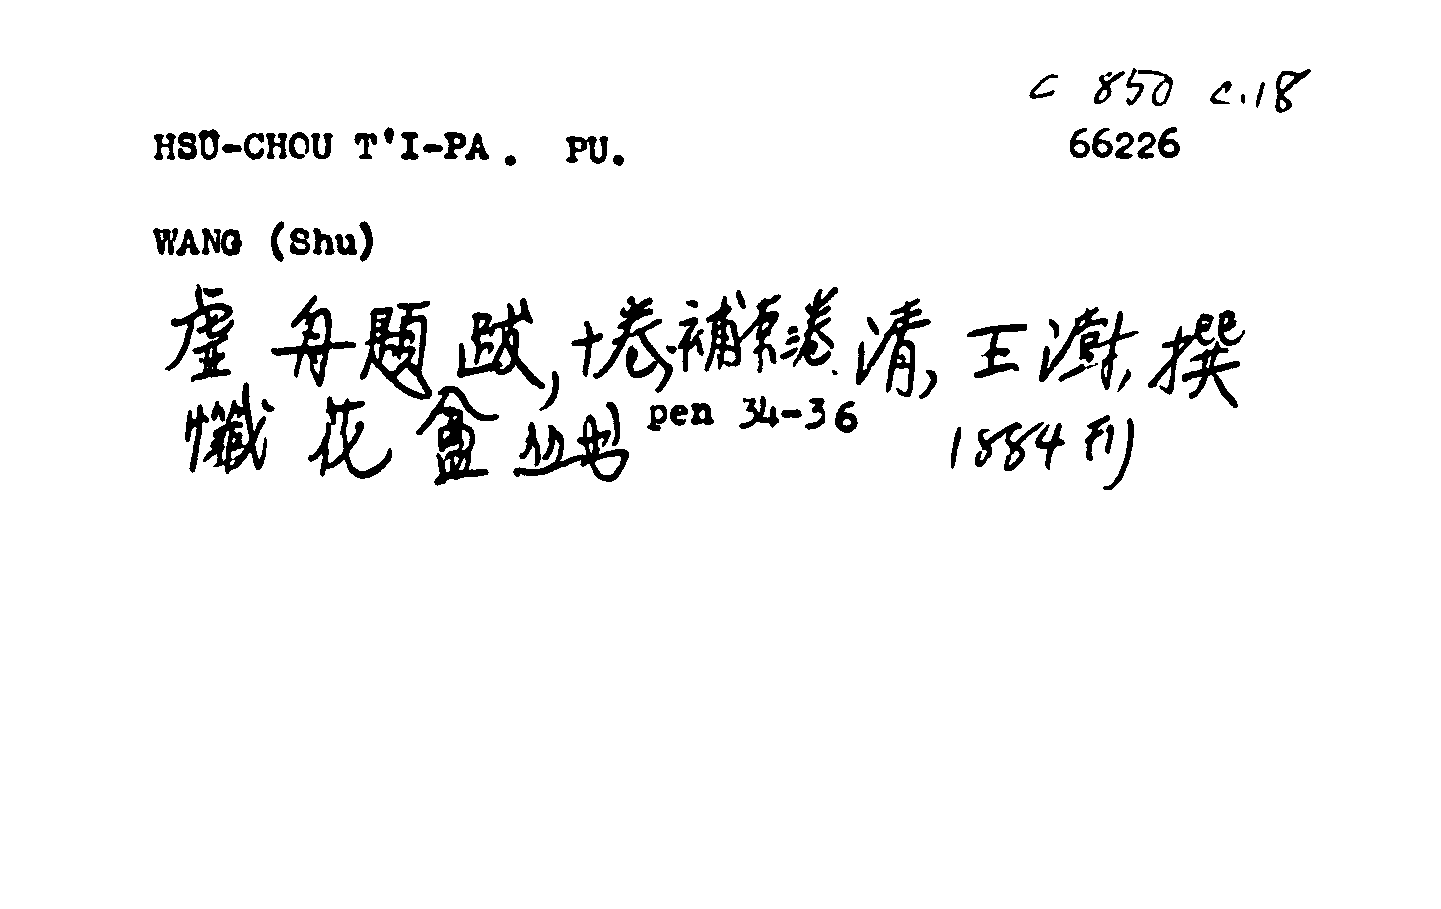 c 850 c.18
HSÜ-CHOU T'I-PA. PU. 66226
WANG (Shu)
虛舟題跋, 十卷, 補原三卷. 清, 王澍, 撰
懺花盦叢書 pen 34-36 1884刊